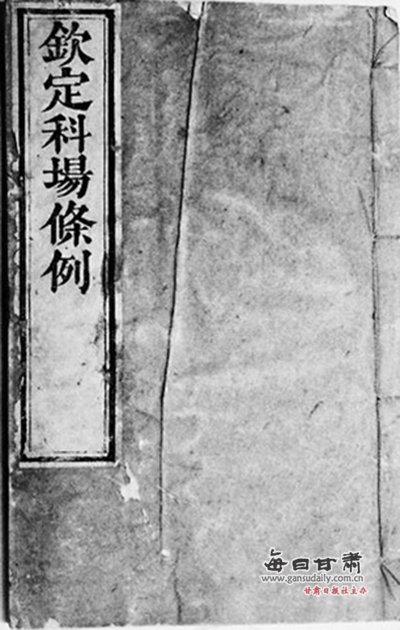 欽定科場條例
每日甘肃
www.gansudaily.com.cn
甘肃日报社主办